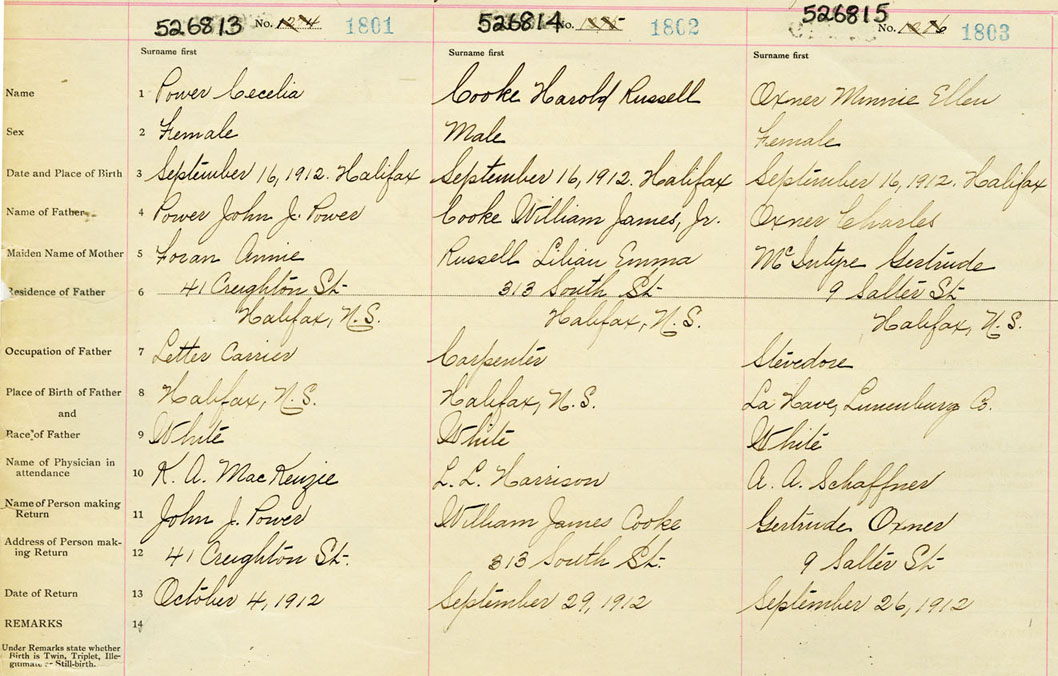 526813 No. 1801 526814 No. 1802 526815 No. 1803
Surname first Surname first Surname first
Name 1 Power Cecelia Cooke Harold Russell Oxner Minnie Ellen
Sex 2 Female Male Female
Date and Place of Birth 3 September 16, 1912. Halifax September 16, 1912. Halifax September 16, 1912. Halifax
Name of Father 4 Power John J. Power Cooke William James, Jr. Oxner Charles
Maiden Name of Mother 5 Foran Annie Russell Lilian Emma McIntyre Gertrude
Residence of Father 6 41 Creighton St. 313 South St. 9 Salter St.
Halifax, N.S. Halifax, N.S. Halifax, N.S.
Occupation of Father 7 Letter Carrier Carpenter Stevedore
Place of Birth of Father 8 Halifax, N.S. Halifax, N.S. La Have, Lunenburg Co.
and
Race of Father 9 White White White
Name of Physician in
attendance 10 K. A. MacKenzie L. L. Harrison A. A. Schaffner
Name of Person making
Return 11 John J. Power William James Cooke Gertrude Oxner
Address of Person mak-
ing Return 12 41 Creighton St. 313 South St. 9 Salter St.
Date of Return 13 October 4, 1912 September 29, 1912 September 26, 1912
REMARKS 14
Under Remarks state whether
Birth is Twin, Triplet, Ille-
gitimate or Still-birth.